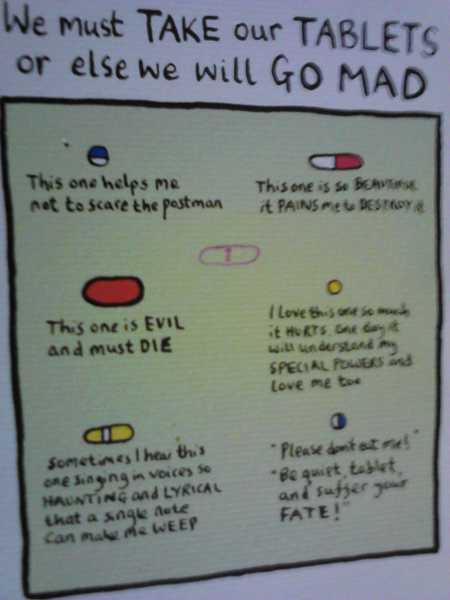 We must TAKE our TABLETS
or else we will GO MAD
This one helps me
not to scare the postman
This one is so BEAUTIFUL
it PAINS me to DESTROY it
This one is EVIL
and must DIE
I love this one so much
it HURTS. One day it
will understand my
SPECIAL POWERS and
love me too
Sometimes I hear this
one singing in voices so
HAUNTING and LYRICAL
that a single note
can make me WEEP
"Please don't eat me!"
"Be quiet, tablet,
and suffer your
FATE!"